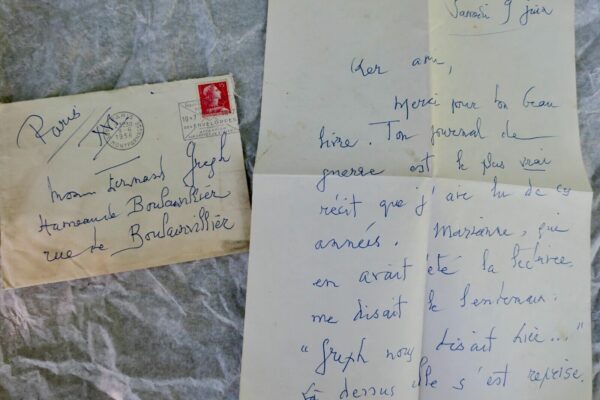 Paris
XVI
PARIS
1956
ENVELOPPES
Monsieur Fernand Gregh
Hameau de Boulainvillier
rue de Boulainvillier
Samedi 9 juin
Cher ami,
Merci pour ton beau
livre. Ton journal de
guerre est le plus vrai
récit que j'aie lu de ces
années. Marianne, qui
en avait été la lectrice,
me disait le lendemain :
"Gregh nous disait hier..."
Là dessus elle s'est reprise.